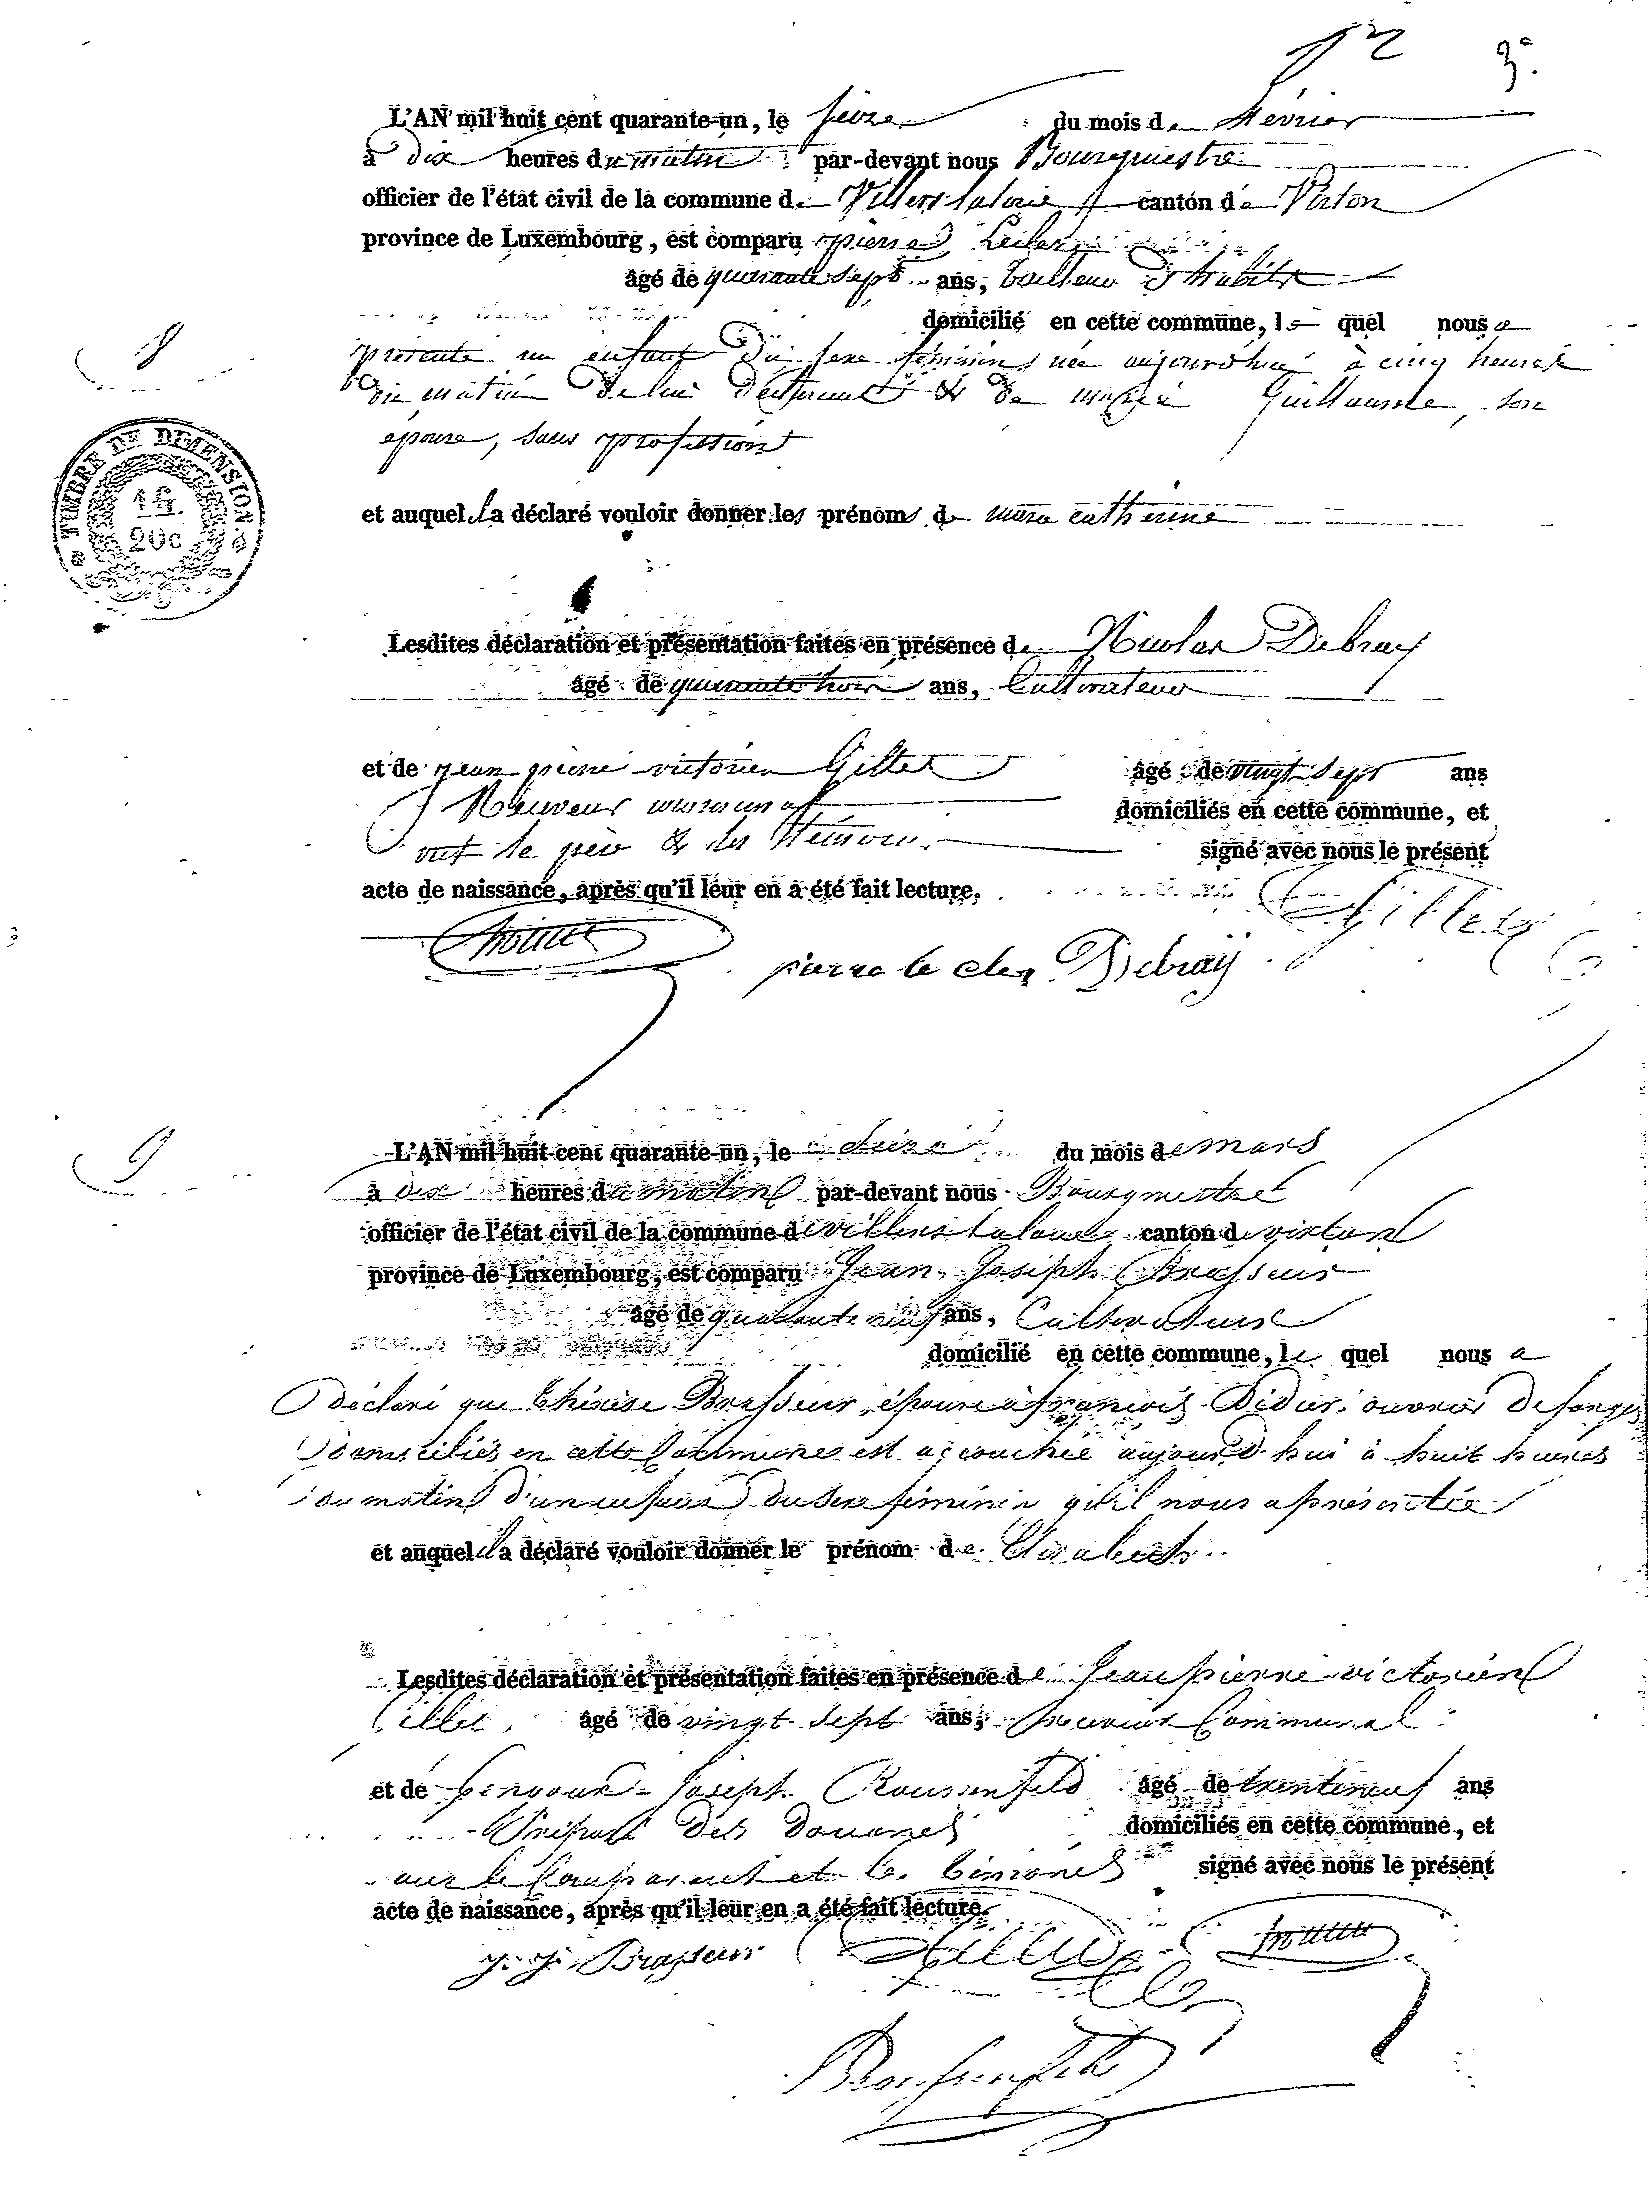 3e
L'AN mil huit cent quarante-un, le seize du mois de février
à dix heures du matin par-devant nous Bourgmestre
officier de l'état civil de la commune de Villers la loue canton de Virton
province de Luxembourg, est comparu pierre Lecler
âgé de quarante sept ans, tailleur d'habits
domicilié en cette commune, le quel nous a
8
présenté un enfant du sexe féminin née aujourd'hui à cinq heures
du matin de lui déclarant & de Guillaume, son
épouse, sans profession
TIMBRE DE DIMENSION
1 fr.
20c
et auquel il a déclaré vouloir donner les prénoms de marie catherine
Lesdites déclaration et présentation faites en présence de Nicolas Debray
âgé de quarante trois ans, Cultivateur
et de jean pierre victorien Gillet âgé de vingt-sept ans
Receveur communal domiciliés en cette commune, et
ont le père & les témoins signé avec nous le présent
acte de naissance, après qu'il leur en a été fait lecture.
Gillet
pierre le cler Debraÿ
9
L'AN mil huit cent quarante-un, le du mois de mars
à dix heures du matin par-devant nous Bourgmestre
officier de l'état civil de la commune de villers la loue canton de virton
province de Luxembourg, est comparu Jean Joseph Brasseur
âgé de quarante neuf ans, Cultivateur
domicilié en cette commune, le quel nous a
déclaré que thérèse Brasseur, épouse à françois Didier, ouvrier de forges
domiciliés en cette Commune est accouchée aujourd'hui à huit heures
du matin d'un enfant du sexe féminin qu'il nous a présentée
et auquel il a déclaré vouloir donner le prénom de Elisabeth
Lesdites déclaration et présentation faites en présence de Jean pierre victorien
Gillet âgé de vingt sept ans, Receveur Communal
et de Joseph Roussenfeld âgé de trente neuf ans
Préposé des douanes domiciliés en cette commune, et
ont le Comparant et les témoins signé avec nous le présent
acte de naissance, après qu'il leur en a été fait lecture.
J. J. Brasseur Gillet